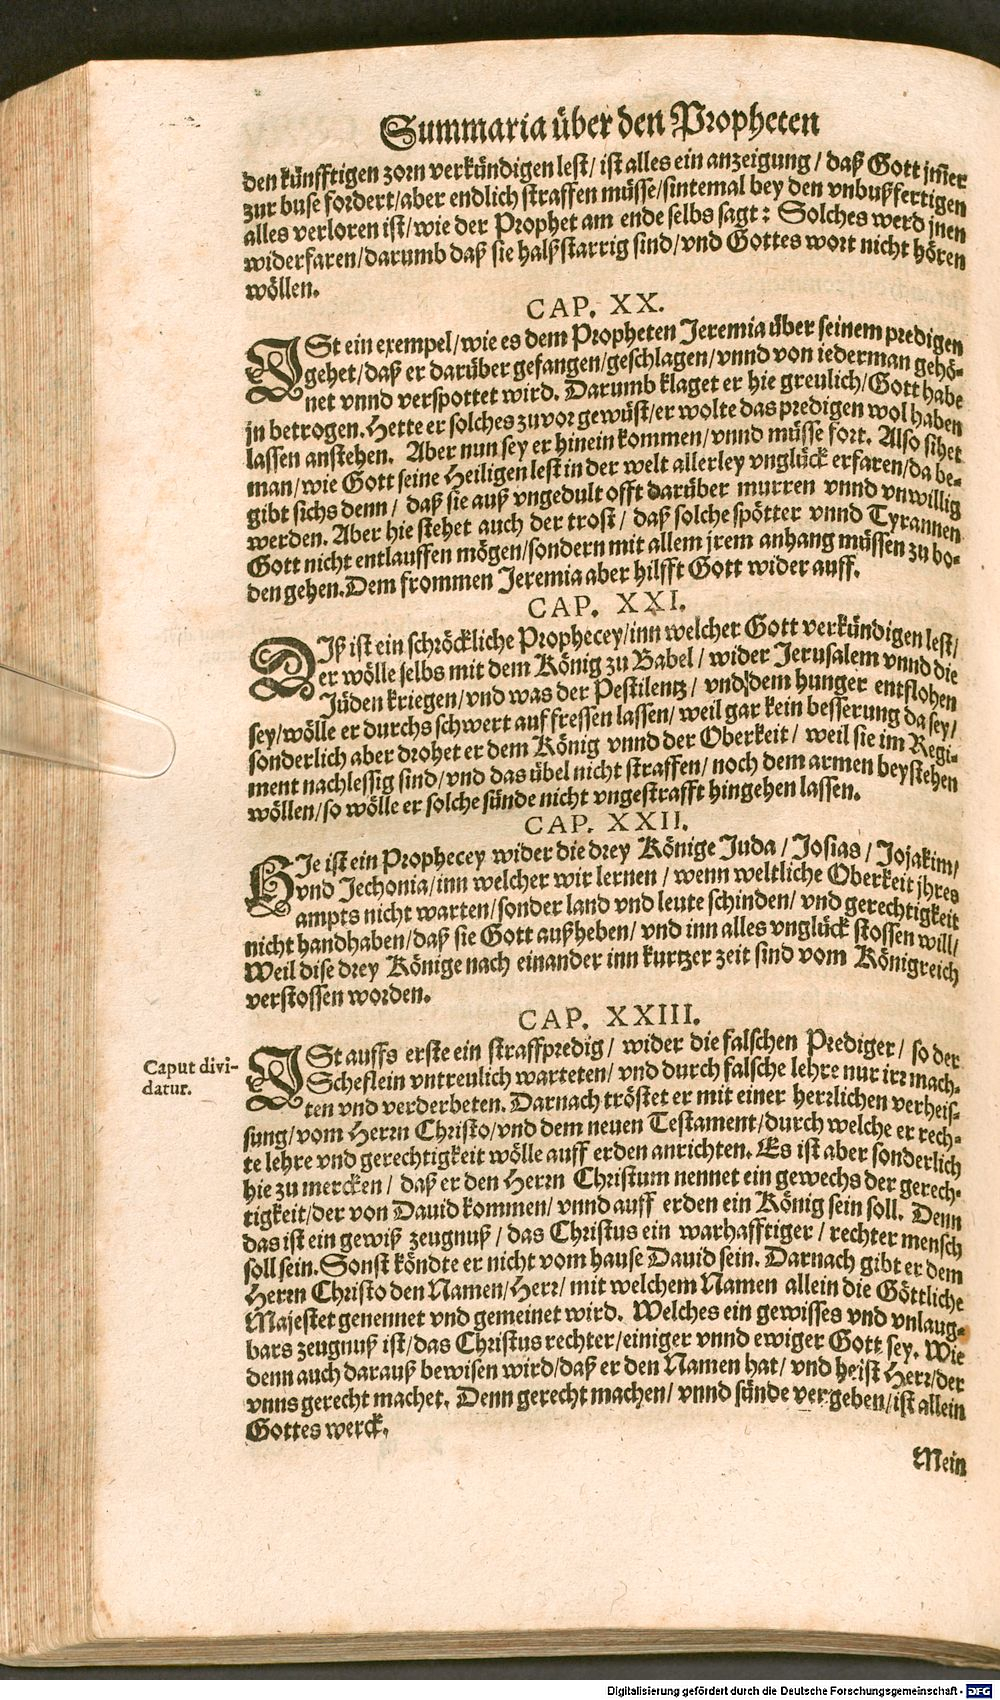 Summaria über den Propheten
den künfftigen zorn verkündigen lest/ ist alles ein anzeigung/ daß Gott jm̃er
zur buse fordert/aber endlich straffen müsse/sintemal bey den vnbußfertigen
alles verloren ist/wie der Prophet am ende selbs sagt: Solches werd jnen
widerfaren/darumb daß sie halßstarrig sind/vnd Gottes wort nicht hören
wöllen.
CAP. XX.
ISt ein exempel/wie es dem Propheten Jeremia über seinem predigen
gehet/daß er darüber gefangen/geschlagen/vnnd von iederman gehö-
net vnnd verspottet wird. Darumb klaget er hie greulich/Gott habe
jn betrogen. Hette er solches zuvor gewüst/er wolte das predigen wol haben
lassen anstehen. Aber nun sey er hinein kommen/vnnd müsse fort. Also sihet
man/wie Gott seine Heiligen lest in der welt allerley vnglück erfaren/da be-
gibt sichs denn/ daß sie auß vngedult offt darüber murren vnnd vnwillig
werden. Aber hie stehet auch der trost/ daß solche spötter vnnd Tyrannen
Gott nicht entlauffen mögen/sondern mit allem jrem anhang müssen zu bo-
den gehen. Dem frommen Jeremia aber hilfft Gott wider auff.
CAP. XXI.
DIß ist ein schröckliche Prophecey/inn welcher Gott verkündigen lest/
er wölle selbs mit dem König zu Babel/ wider Jerusalem vnnd die
Jüden kriegen/vnd was der Pestilentz/ vnd dem hunger entflohen
sey/wölle er durchs schwert auffressen lassen/ weil gar kein besserung da sey/
sonderlich aber drohet er dem König vnnd der Oberkeit/ weil sie im Regi-
ment nachlessig sind/vnd das übel nicht straffen/ noch dem armen beystehen
wöllen/so wölle er solche sünde nicht vngestrafft hingehen lassen.
CAP. XXII.
HIe ist ein Prophecey wider die drey Könige Juda/ Josias/ Jojakim/
vnd Jechonia/inn welcher wir lernen/ wenn weltliche Oberkeit jhres
ampts nicht warten/sonder land vnd leute schinden/ vnd gerechtigkeit
nicht handhaben/daß sie Gott außheben/ vnd inn alles vnglück stossen will/
Weil dise drey Könige nach einander inn kurtzer zeit sind vom Königreich
verstossen worden.
CAP. XXIII.
Caput divi-
datur.
ISt auffs erste ein straffpredig/ wider die falschen Prediger/ so der
Scheflein vntreulich warteten/ vnd durch falsche lehre nur irr mach-
ten vnd verderbeten. Darnach tröstet er mit einer herrlichen verheis-
sung/vom Herrn Christo/vnd dem neuen Testament/durch welche er rech-
te lehre vnd gerechtigkeit wölle auff erden anrichten. Es ist aber sonderlich
hie zu mercken/ daß er den Herrn Christum nennet ein gewechs der gerech-
tigkeit/der von Dauid kommen/ vnnd auff erden ein König sein soll. Denn
das ist ein gewiß zeugnuß/ das Christus ein warhafftiger/ rechter mensch
soll sein. Sonst köndte er nicht vom hause Dauid sein. Darnach gibt er dem
Herrn Christo den Namen/Herr/ mit welchem Namen allein die Göttliche
Majestet genennet vnd gemeinet wird. Welches ein gewisses vnd vnlaug-
bars zeugnuß ist/das Christus rechter/einiger vnnd ewiger Gott sey. Wie
denn auch darauß bewisen wird/daß er den Namen hat/ vnd heist Herr/der
vnns gerecht machet. Denn gerecht machen/ vnnd sünde vergeben/ist allein
Gottes werck.
Mein
Digitalisierung gefördert durch die Deutsche Forschungsgemeinschaft - DFG